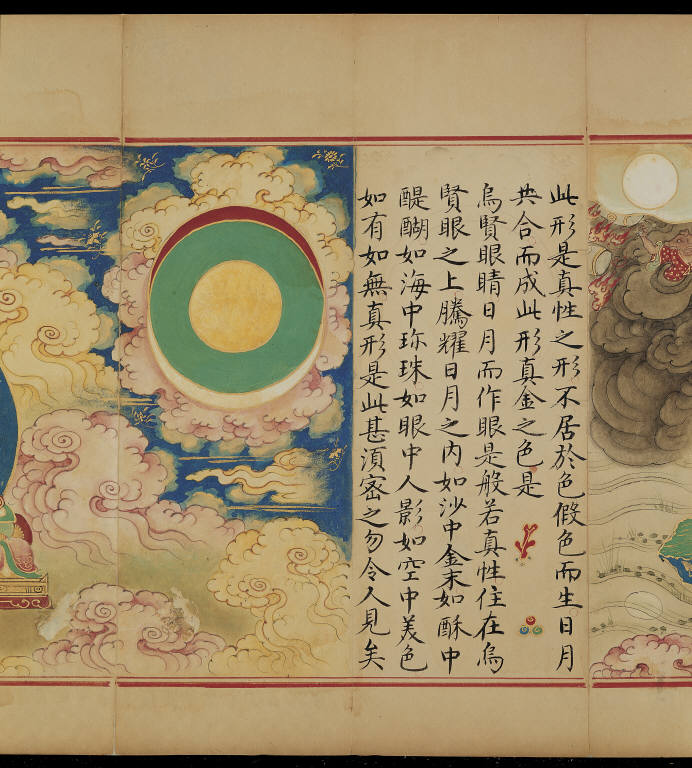 此形是真性之形不居於色假色而生日月
共合而成此形真金之色是
烏賢眼睛日月而作眼是般若真性住在烏
賢眼之上騰耀日月之内如沙中金末如酥中
醍醐如海中珎珠如眼中人影如空中美色
如有如無真形是此甚湏宻之勿令人見矣